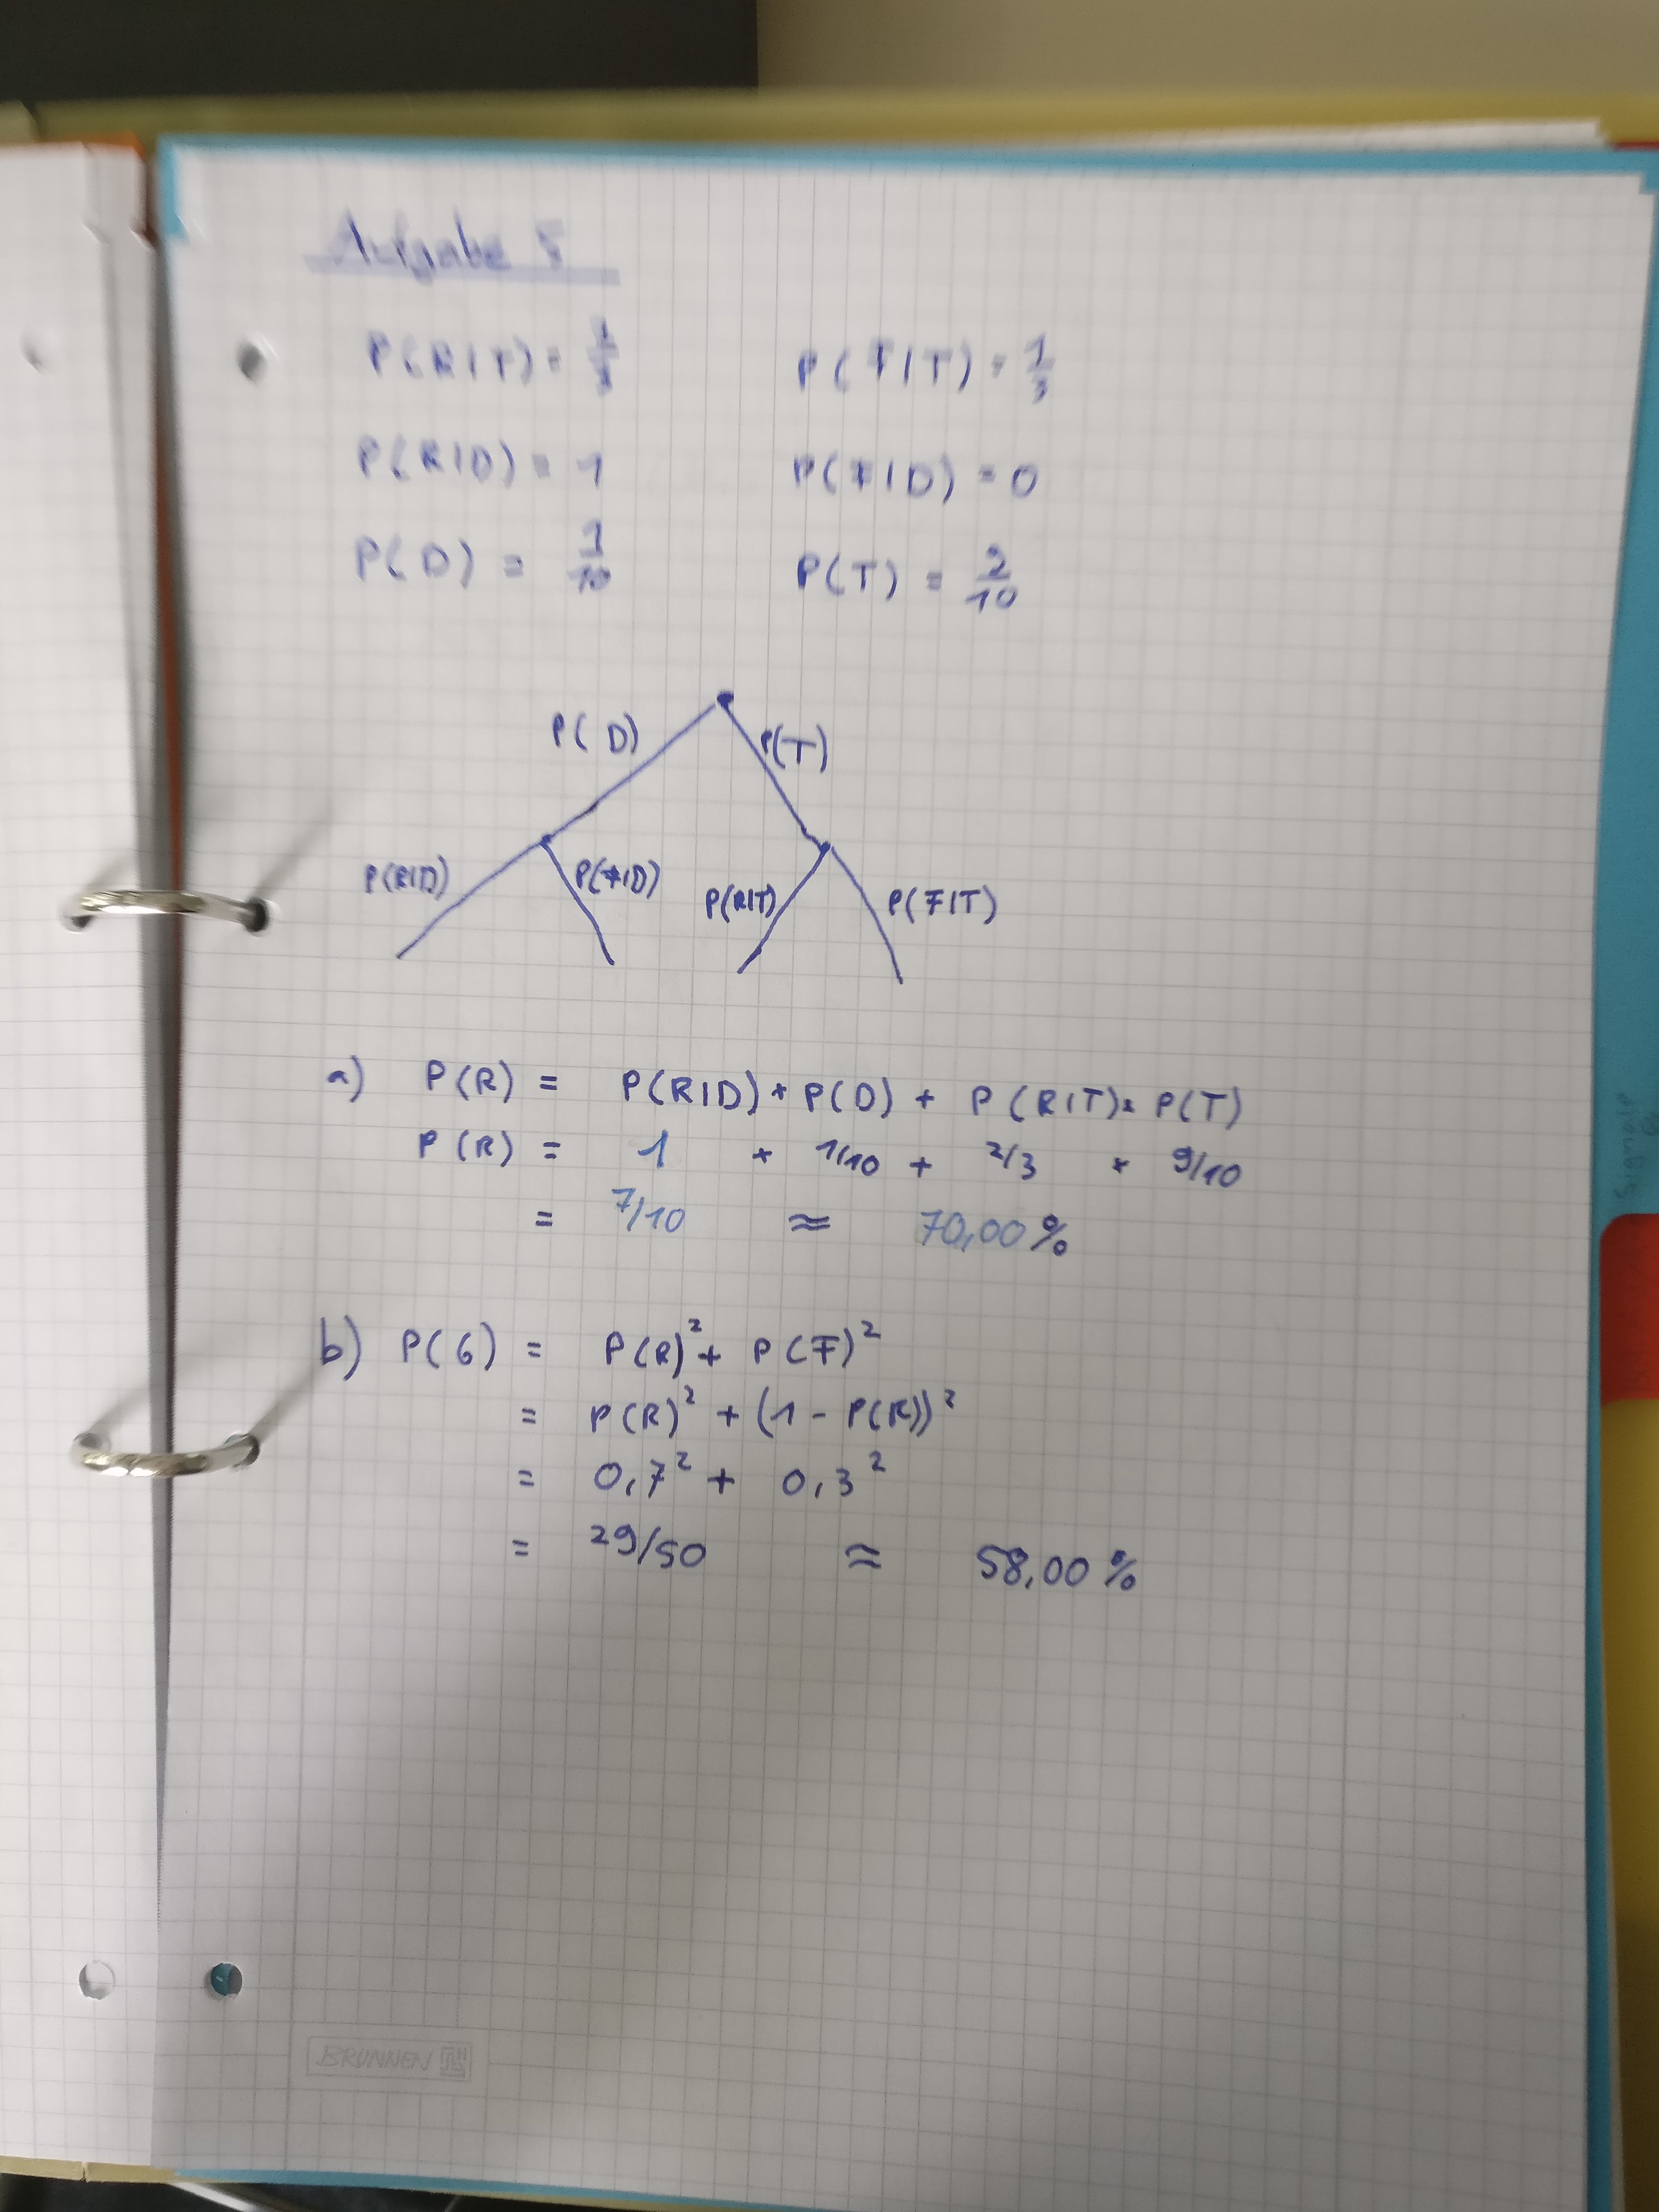 Aufgabe 5
P(R|T) = 2/3 P(F|T) = 1/3
P(R|D) = 1 P(F|D) = 0
P(D) = 1/10 P(T) = 9/10
P(D) P(T)
P(R|D) P(F|D) P(R|T) P(F|T)
a) P(R) = P(R|D) * P(D) + P(R|T) * P(T)
P(R) = 1 * 1/10 + 2/3 * 9/10
= 7/10 ≈ 70,00 %
b) P(G) = P(R)² + P(F)²
= P(R)² + (1 - P(R))²
= 0,7² + 0,3²
= 29/50 ≈ 58,00 %
BRUNNEN